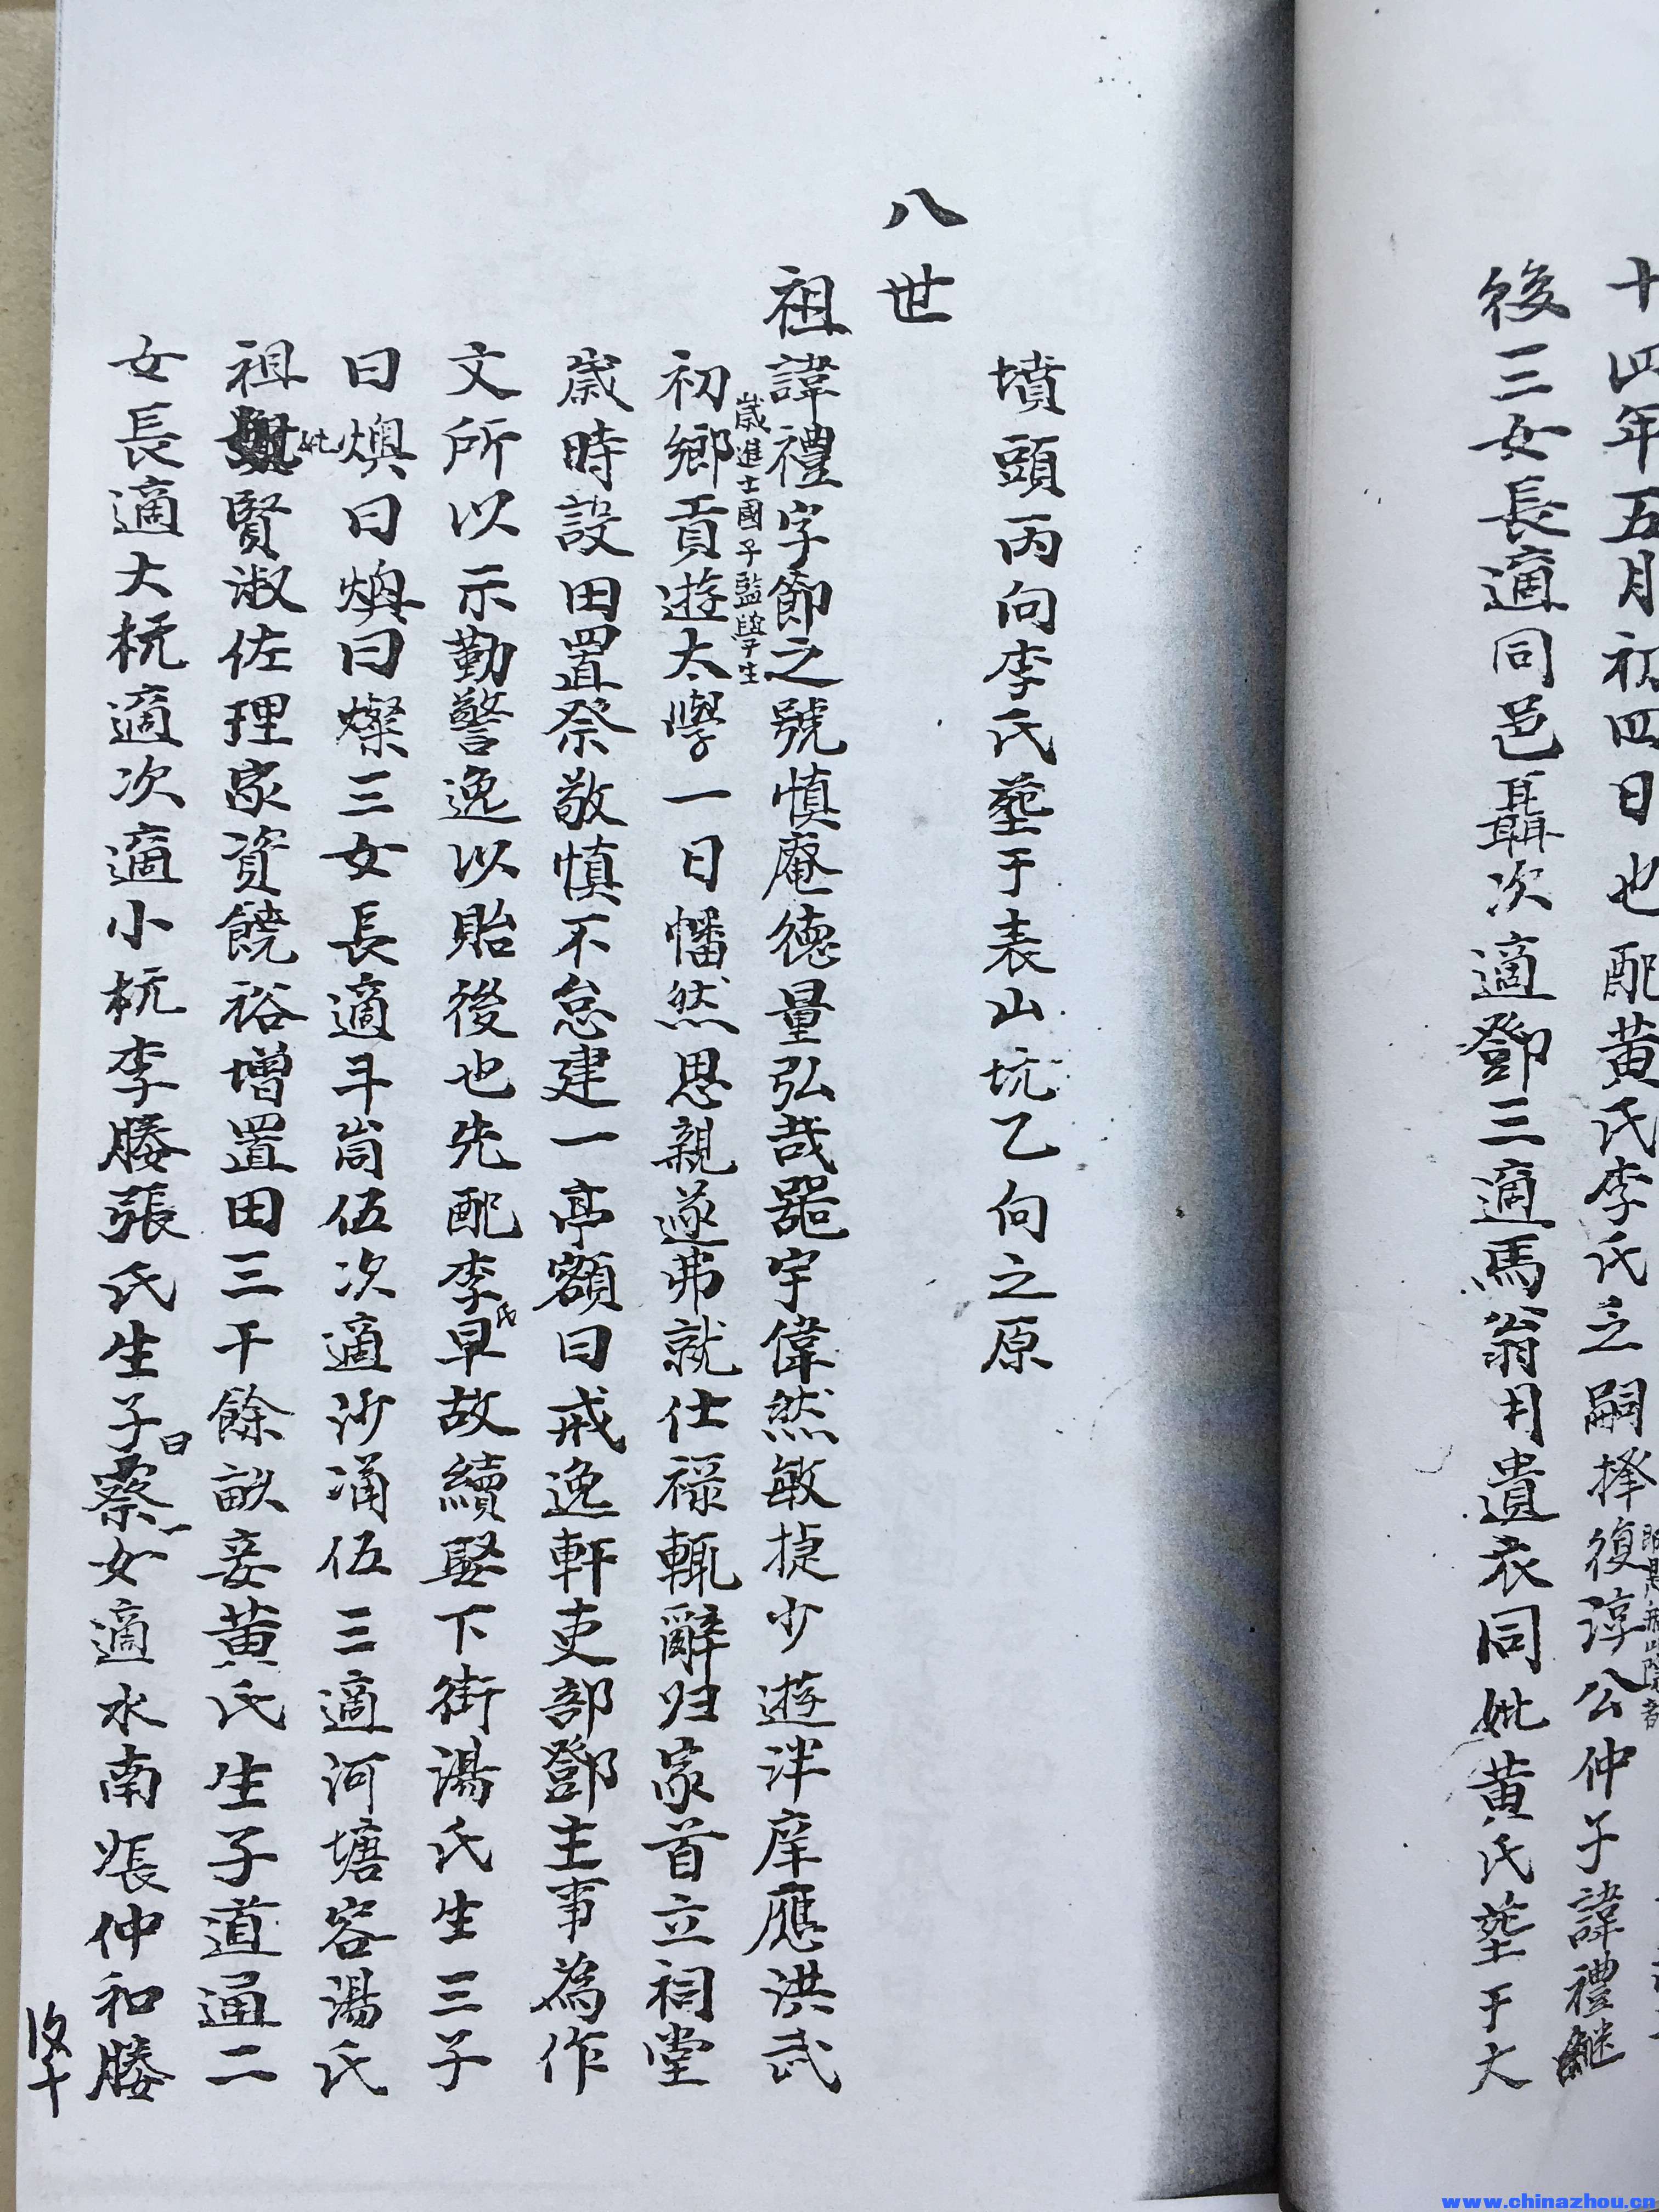 十四年五月初四日也配黄氏李氏乏嗣择復淳公仲子諱禮繼
後三女長適同邑聶次適鄧三適馬翁用遺衣同妣黄氏塟于大
墳頭丙向李氏塟于表山坑乙向之原
八世
祖諱禮字節之號慎庵德量弘哉器宇偉然敏捷少遊泮庠應洪武
歲進士國子監學生
初鄉貢遊太學一日幡然思親遂弗就仕禄輒辭归家首立祠堂
歲時設田置祭敬慎不怠建一亭額曰戒逸軒吏部鄧主事為作
文所以示勤警逸以貽後也先配李氏早故續娶下街湯氏生三子
曰燠曰煥曰燦三女長適斗崗伍次適沙涌伍三適河塘容湯氏
祖妣賢淑佐理家資饒裕增置田三千餘畝妾黄氏生子道通二
女長適大杬適次適小杬李媵張氏生子曰蔡一女適水南張仲和媵
www.chinazhou.cn